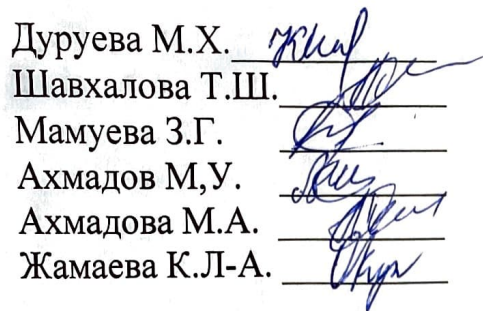 Дуруева М.Х.
Шавхалова Т.Ш.
Мамуева З.Г.
Ахмадов М,У.
Ахмадова М.А.
Жамаева К.Л-А.